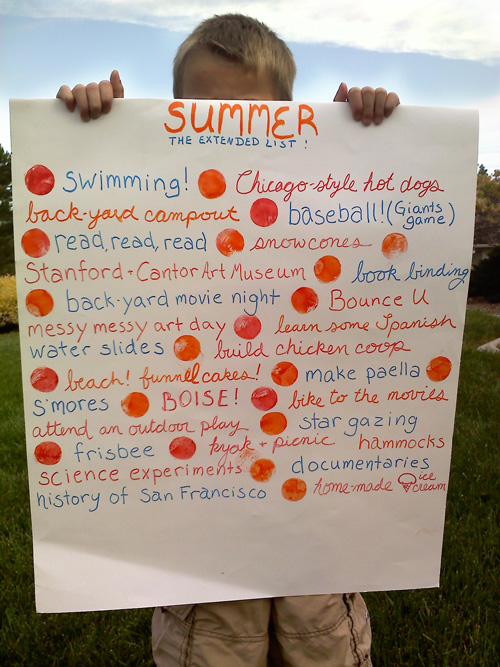 SUMMER
THE EXTENDED LIST!
swimming! Chicago-style hot dogs
back-yard campout baseball! (Giants game)
read, read, read snowcones
Stanford - Cantor Art Museum book binding
back-yard movie night Bounce U
messy messy art day learn some Spanish
water slides build chicken coop
beach! funnel cakes! make paella
s'mores BOISE! bike to the movies
attend an outdoor play star gazing
frisbee kyak + picnic hammocks
science experiments documentaries
history of San Francisco home-made ice cream